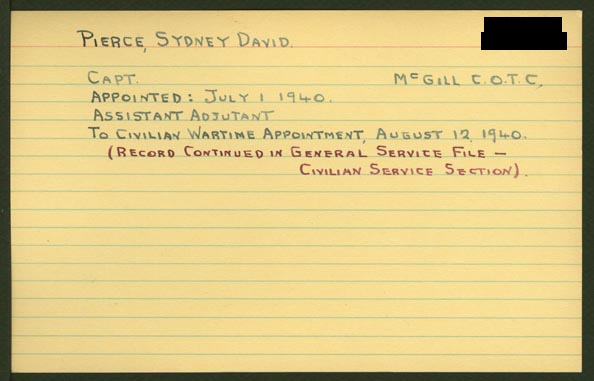 PIERCE, SYDNEY DAVID.
CAPT. McGILL C.O.T.C,
APPOINTED: JULY 1 1940.
ASSISTANT ADJUTANT
TO CIVILIAN WARTIME APPOINTMENT, AUGUST 12, 1940.
(RECORD CONTINUED IN GENERAL SERVICE FILE —
CIVILIAN SERVICE SECTION).